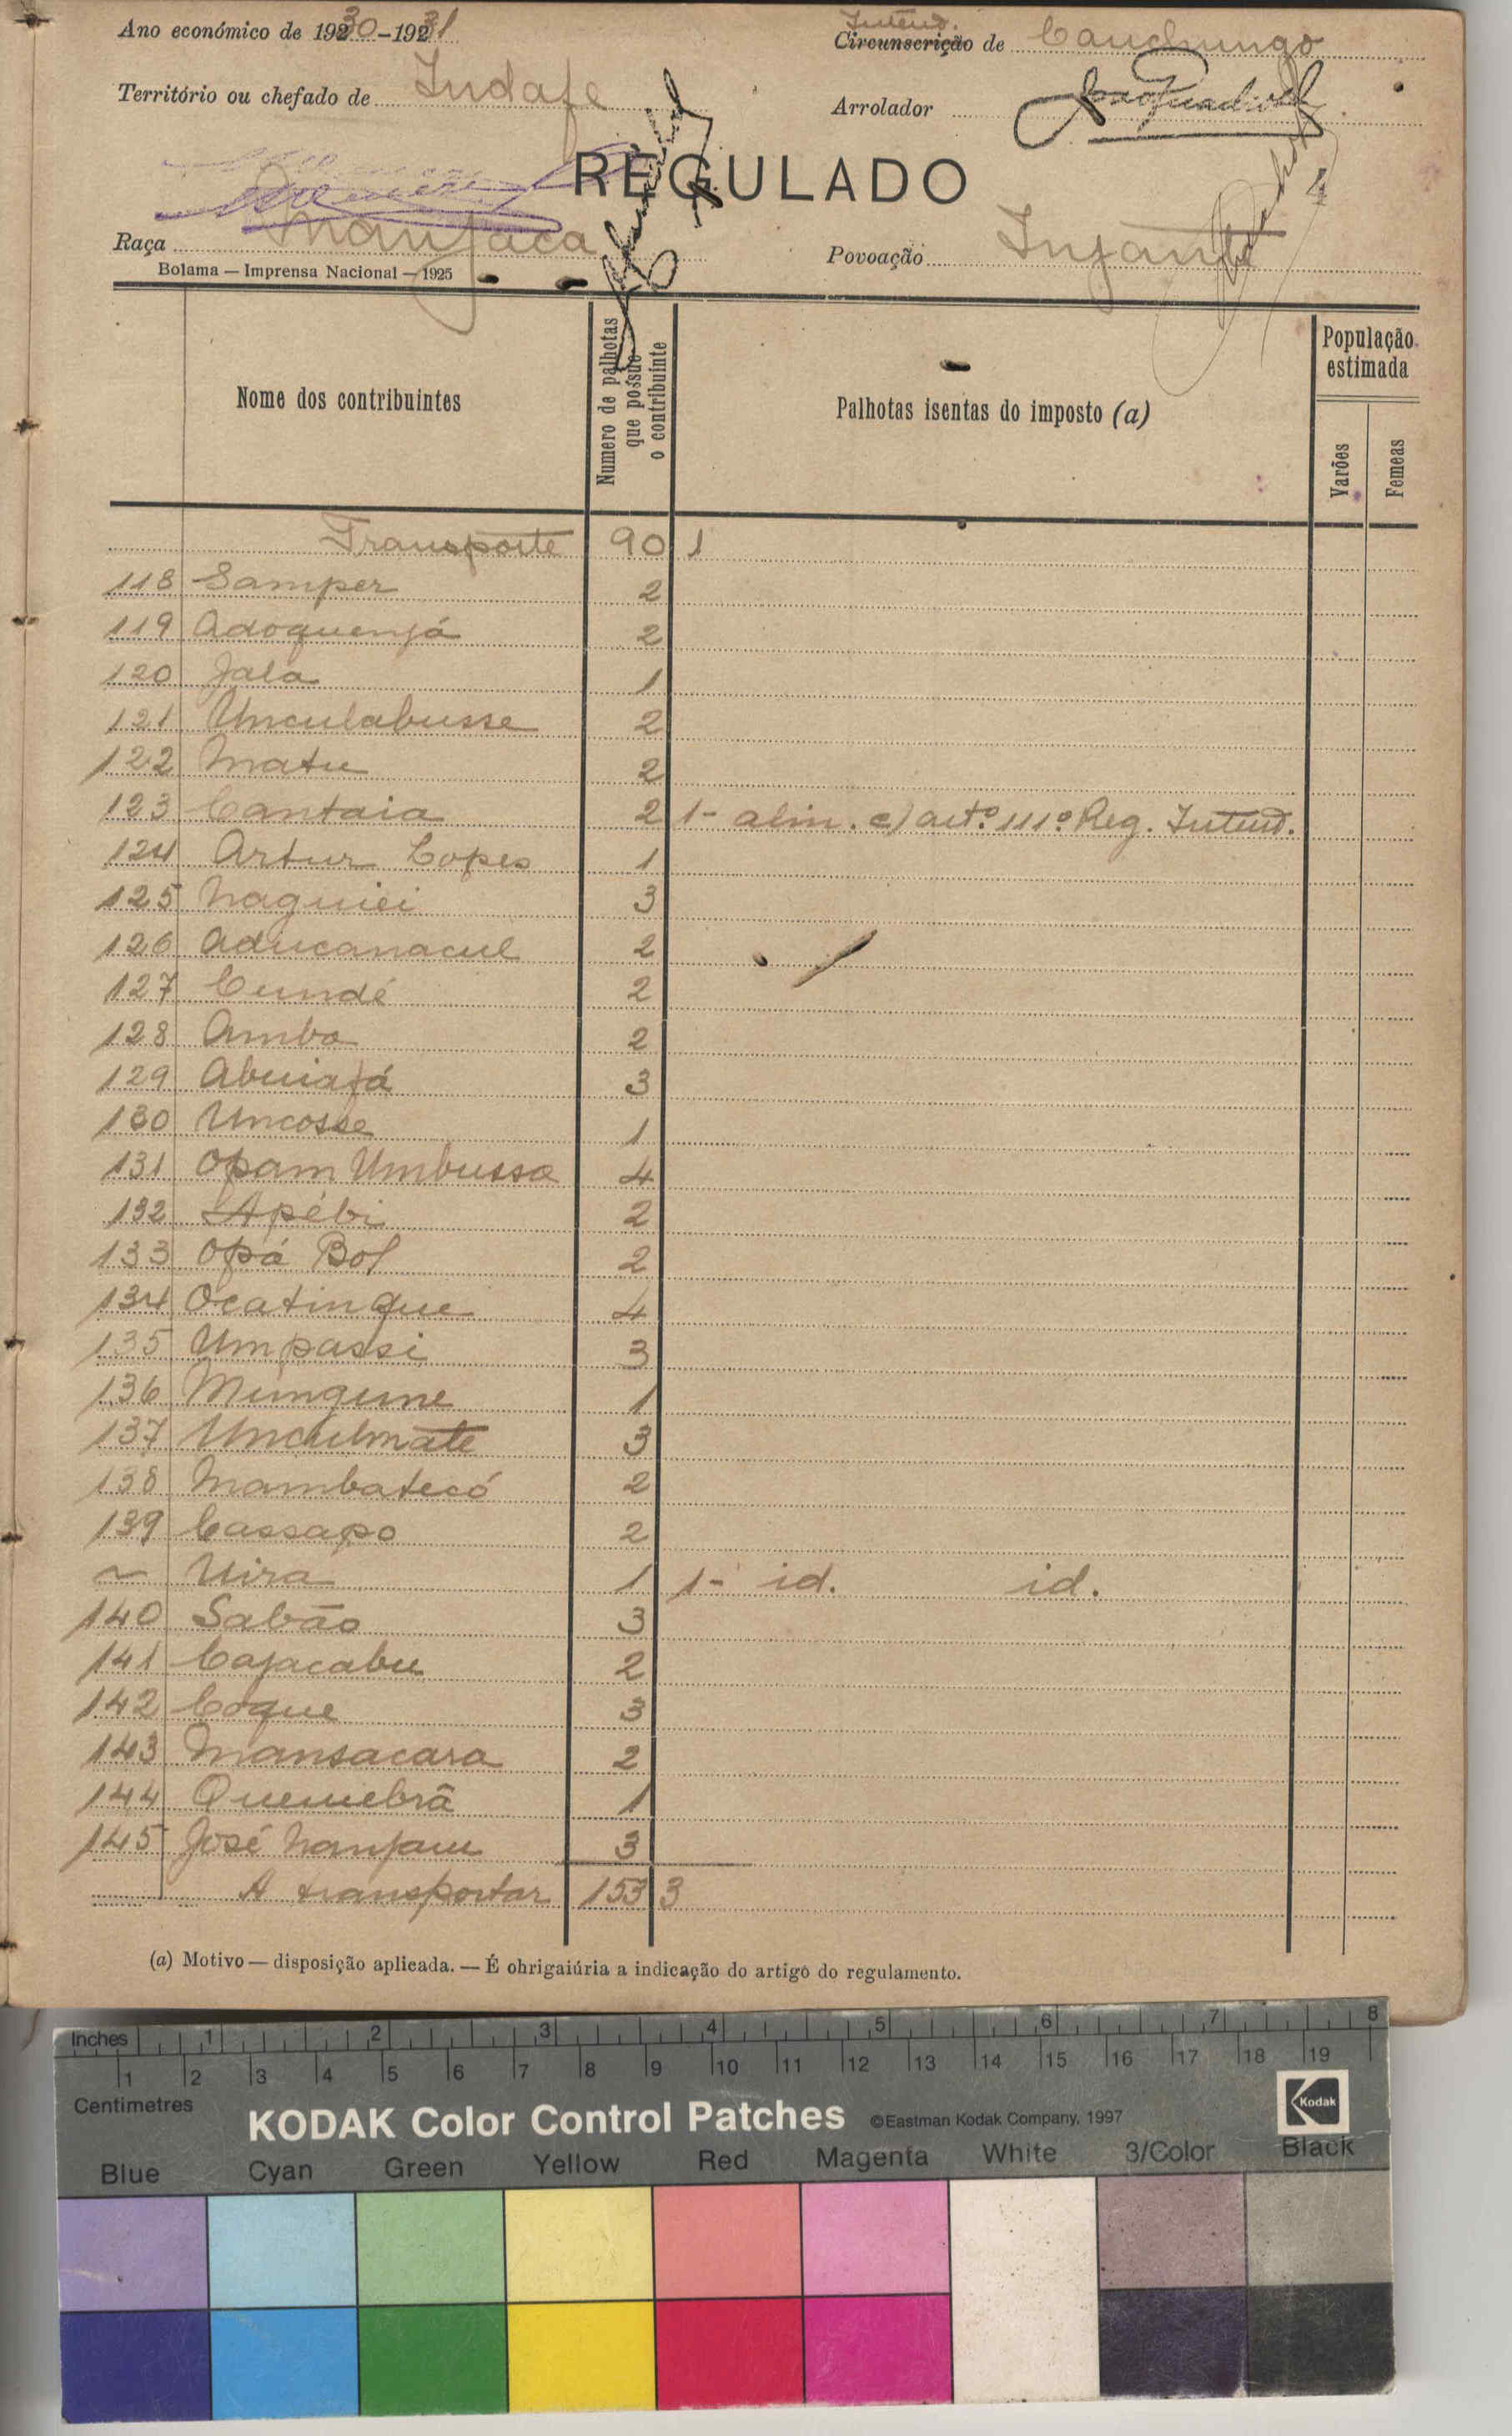 Ano económico de 1930-1931
Intend.
Circunscrição de Canchungo
Território ou chefado de Indafe
Arrolador
REGULADO
Raça Manjaca
Povoação
Bolama — Imprensa Nacional — 1925
Nome dos contribuintes
Numero de palhotas
que possue
o contribuinte
Palhotas isentas do imposto (a)
População
estimada
Varões
Femeas
Transporte 90 1
118 Samper 2
119 Adoquenjá 2
120 Jala 1
121 Unculabusse 2
122 Matu 2
123 Cantaia 2 1- alin. c) artº. 111º Reg. Intend.
124 Artur Lopes 1
125 Naguiei 3
126 Aducanacul 2
127 Cundé 2
128 Ambo 2
129 Abuiafá 3
130 Uncosse 1
131 Opam Umbussa 4
132 Apébi 2
133 Opá Bol 2
134 Ocatinque 4
135 Umpassi 3
136 Mungune 1
137 Unculmate 3
138 Mambatecó 2
139 Cassapo 2
~ Uira 1 1- id. id.
140 Sabão 3
141 Cajacabu 2
142 Coque 3
143 Mansacara 2
144 Quemebrã 1
145 José Nanjam 3
A transportar 153 3
(a) Motivo — disposição aplicada. — É ohrigaiúria a indicação do artigo do regulamento.
Inches 1 2 3 4 5 6 7 8
1 2 3 4 5 6 7 8 9 10 11 12 13 14 15 16 17 18 19
Centimetres
KODAK Color Control Patches ©Eastman Kodak Company, 1997 Kodak
Blue Cyan Green Yellow Red Magenta White 3/Color Black